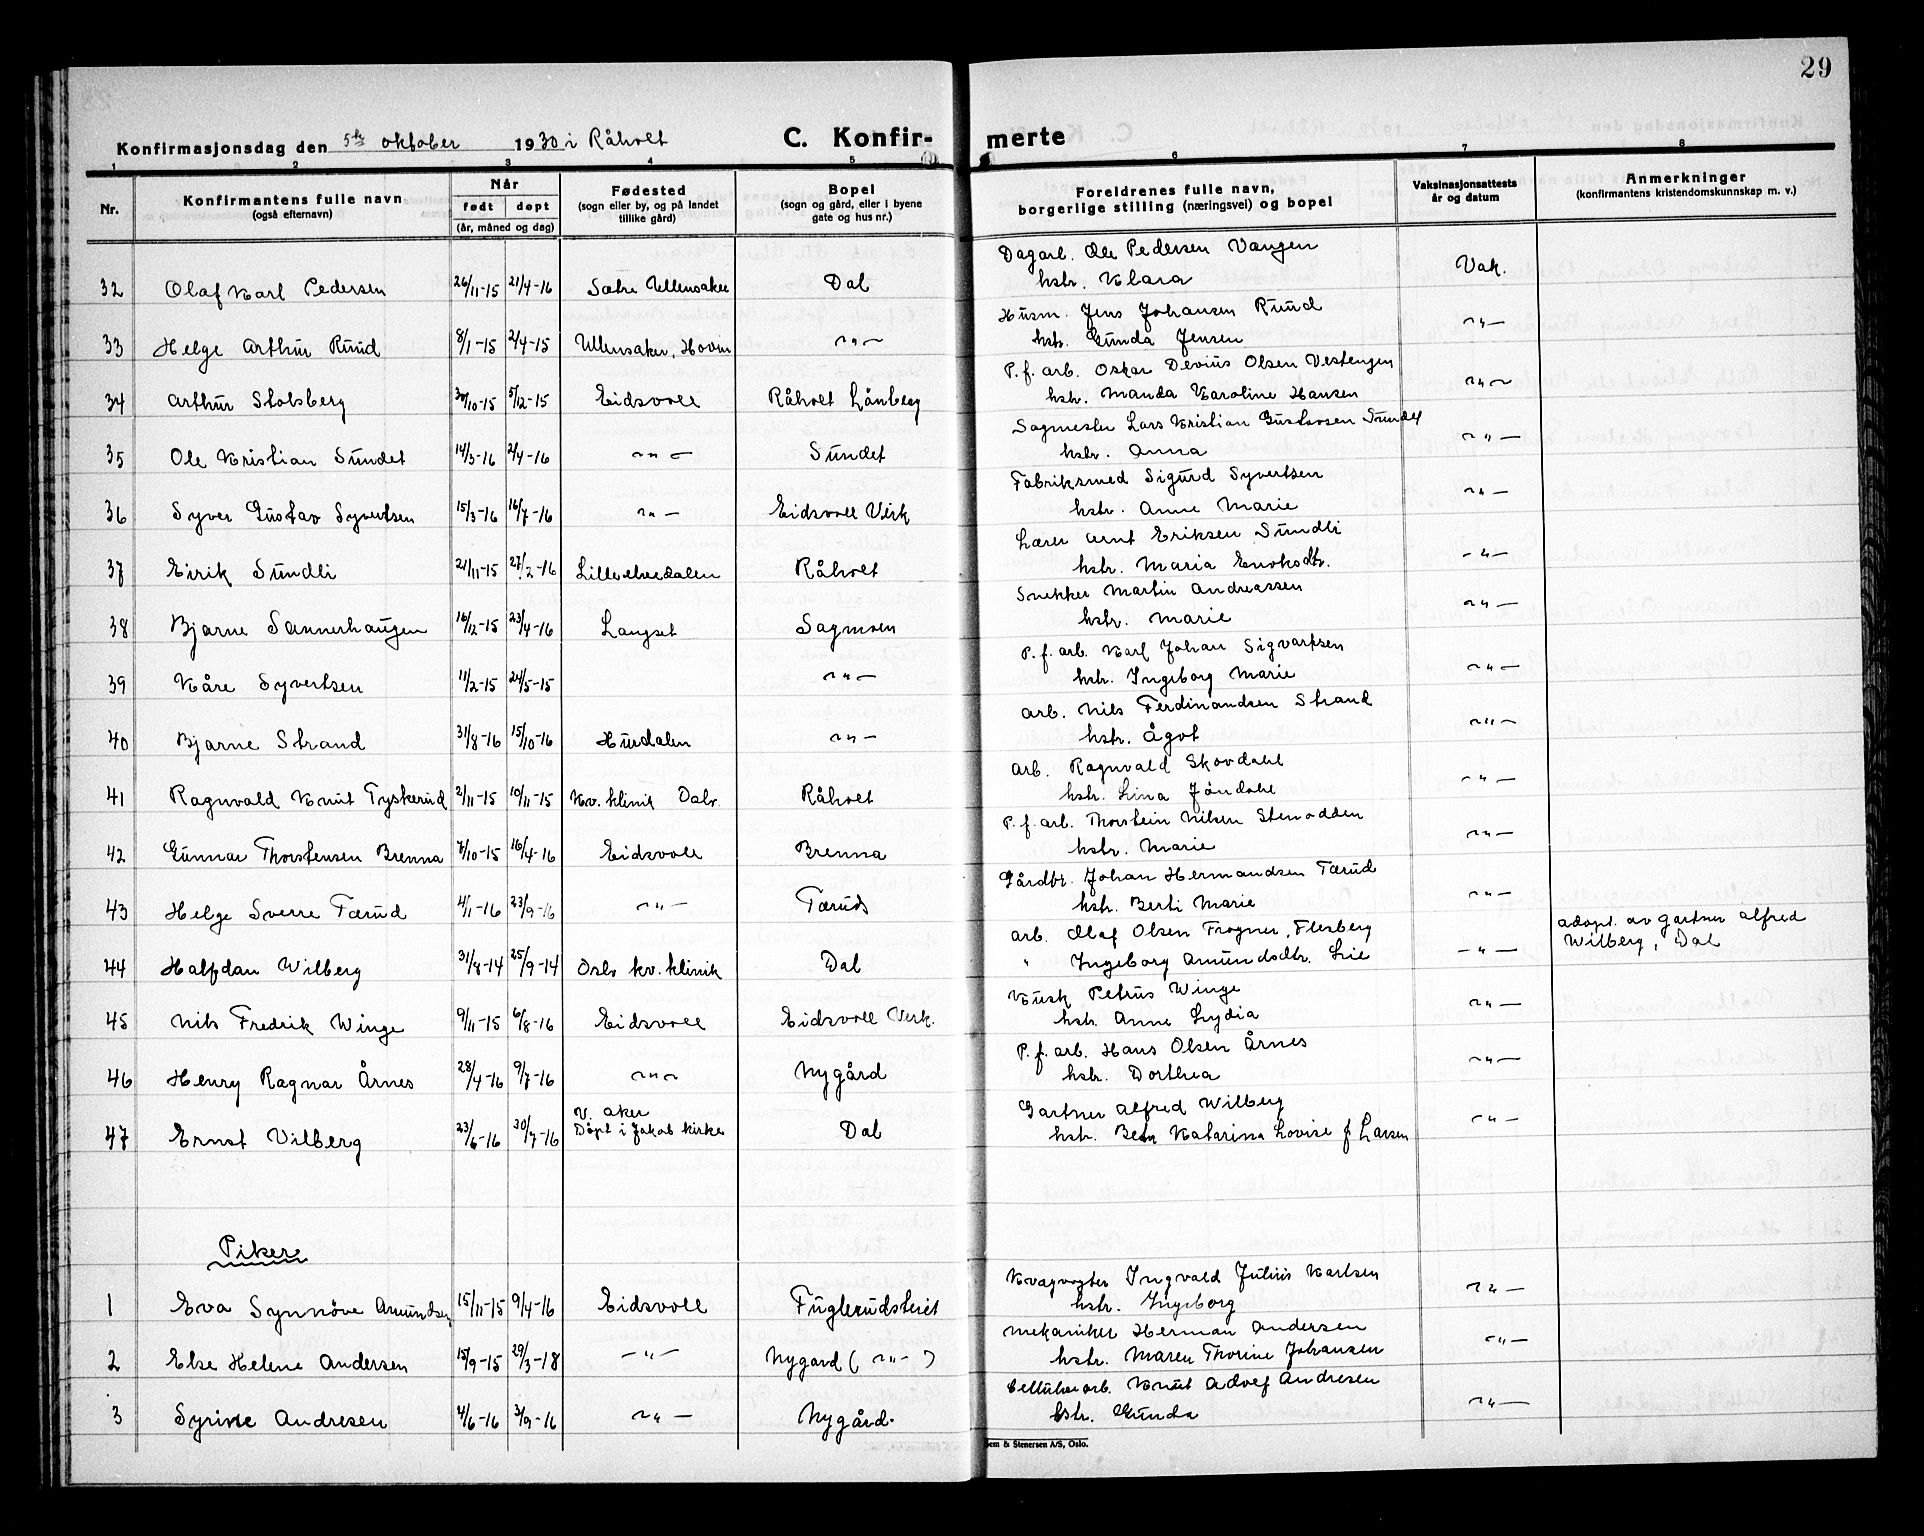 29
Konfirmasjonsdag den 5te oktober 1930 i Råholt C. Konfir- merte
1 2 3 4 5 6 7 8
Nr. Konfirmantens fulle navn (også efternavn) Når født døpt (år, måned og dag) Fødested (sogn eller by, og på landet tillike gård) Bopel (sogn og gård, eller i byene gate og hus nr.) Foreldrenes fulle navn, borgerlige stilling (næringsvei) og bopel Vaksinasjonsattests år og datum Anmerkninger (konfirmantens kristendomskunnskap m. v.)
Dagarb. Ole Pedersen Vangen
32 Olaf Karl Pedersen 26/11-15 21/4-16 Sætre Ullensaker Dal hstr. Klara Vak.
Husm. Jens Johansen Ruud
33 Helge Arthur Ruud 8/1-15 2/4-15 Ullensaker, Hovin -"- hstr. Gunda Jensen -"-
P. f. arb. Oskar Devius Olsen Vestengen
34 Arthur Stolsberg 30/10-15 5/12-15 Eidsvoll Råholt Lånberg hstr. Manda Karoline Hansen -"-
Sagmester Lars Kristian Gustavsen Sundet
35 Ole Kristian Sundet 14/3-16 2/4-16 -"- Sundet hstr. Anna -"-
Fabriksmed Sigurd Syvertsen
36 Syver Gustav Syvertsen 15/3-16 16/7-16 -"- Eidsvoll Verk hstr. Anne Marie -"-
Lærer Arnt Eriksen Sundli
37 Eirik Sundli 21/11-15 27/2-16 Lilleelvedalen Råholt hstr. Maria Enoksdtr. -"-
Snekker Martin Andreassen
38 Bjarne Sannerhaugen 16/12-15 23/4-16 Langset Sagmoen hstr. Marie -"-
P. f. arb. Karl Johan Sigvartsen
39 Kåre Syvertsen 11/2-15 24/5-15 -"- hstr. Ingeborg Marie -"-
Arb. Nils Ferdinandsen Strand
40 Bjarne Strand 31/8-16 15/10-16 Hurdalen -"- hstr. Ågot -"-
Arb. Ragnvald Skovdahl
41 Ragnvald Knut Tyskerud 2/11-15 10/11-15 Kv. klinik Oslo Råholt hstr. Lina Jøndahl -"-
P. f. arb. Thorstein Nilsen Stenodden
42 Gunnar Thorstensen Brenna 7/10-15 16/4-16 Eidsvoll Brenna hstr. Marie -"-
Gårdbr. Johan Hermandsen Tærud
43 Helge Sverre Tærud 4/1-16 23/9-16 -"- Tæruds hstr. Berti Marie -"-
Arb. Olaf Olsen Frogner, Flesberg Adopt. av gartner Alfred
44 Halfdan Wilberg 31/8-14 25/9-14 Oslo kv. klinik Dal " Ingeborg Amundsdtr. Lie -"- Wilberg, Dal
Kusk Petrus Winge
45 Nils Fredrik Winge 9/11-15 6/8-16 Eidsvoll Eidsvoll Verk. hstr. Anne Lydia -"-
P. f. arb. Hans Olsen Årnes
46 Henry Ragnar Årnes 28/4-16 9/7-16 -"- Nygård hstr. Dorthea -"-
V. Aker Gartner Alfred Wilberg
47 Ernst Vilberg 23/6-16 30/7-16 Døpt i Jakob kirke Dal hstr. Katarina Lovise f Larsen -"-
Pikere
Ingvald Julius Karlsen
1 Eva Synnöve Amundsen 15/11-15 9/4-16 Eidsvoll Fuglerudsteiet hstr. Ingeborg -"-
Mekaniker Herman Andersen
2 Else Helene Andersen 15/9-15 29/3-18 -"- Nygard ( -"- ) hstr. Maren Thorine Johansen -"-
Cellulosearb. Knut Adolf Andresen
3 Syrine Andresen 4/6-16 3/9-16 -"- Nygård. hstr. Gunda -"-
Sem & Stenersen A/S, Oslo.